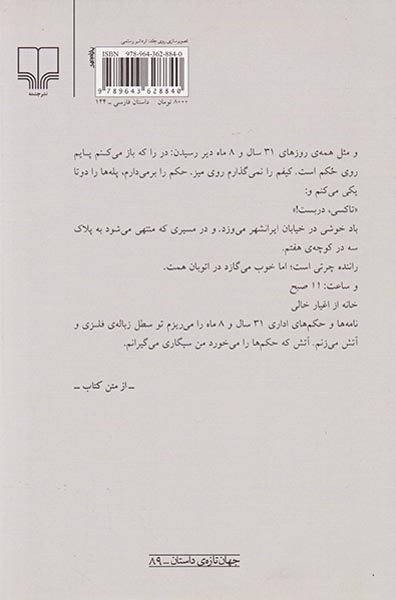 تصویرسازی روی جلد: اردشیر رستمی
ISBN 978-964-362-884-0
9 789643 628840
داستان فارسی ــ ۱۴۴
۸۰۰۰ تومان
نشرچشمه
و مثل همه‌ی روزهای ۳۱ سال و ۸ ماه دیر رسیدن: در را که باز می‌کنم پایم
روی حُکم است. کیفم را نمی‌گذارم روی میز. حکم را برمی‌دارم، پله‌ها را دوتا
یکی می‌کنم و:
«تاکسی، دربست!»
باد خوشی در خیابان ایرانشهر می‌وزد. و در مسیری که منتهی می‌شود به پلاک
سه در کوچه‌ی هفتم.
راننده چرتی است؛ اما خوب می‌گازد در اتوبان همت.
و ساعت: ۱۱ صبح
خانه از اغیار خالی
نامه‌ها و حکم‌های اداری ۳۱ سال و ۸ ماه را می‌ریزم تو سطل زباله‌ی فلزی و
آتش می‌زنم. آتش که حکم‌ها را می‌خورد من سیگاری می‌گیرانم.
ــ از متن کتاب ــ
جهان تازه‌ی داستان ــ ۸۹